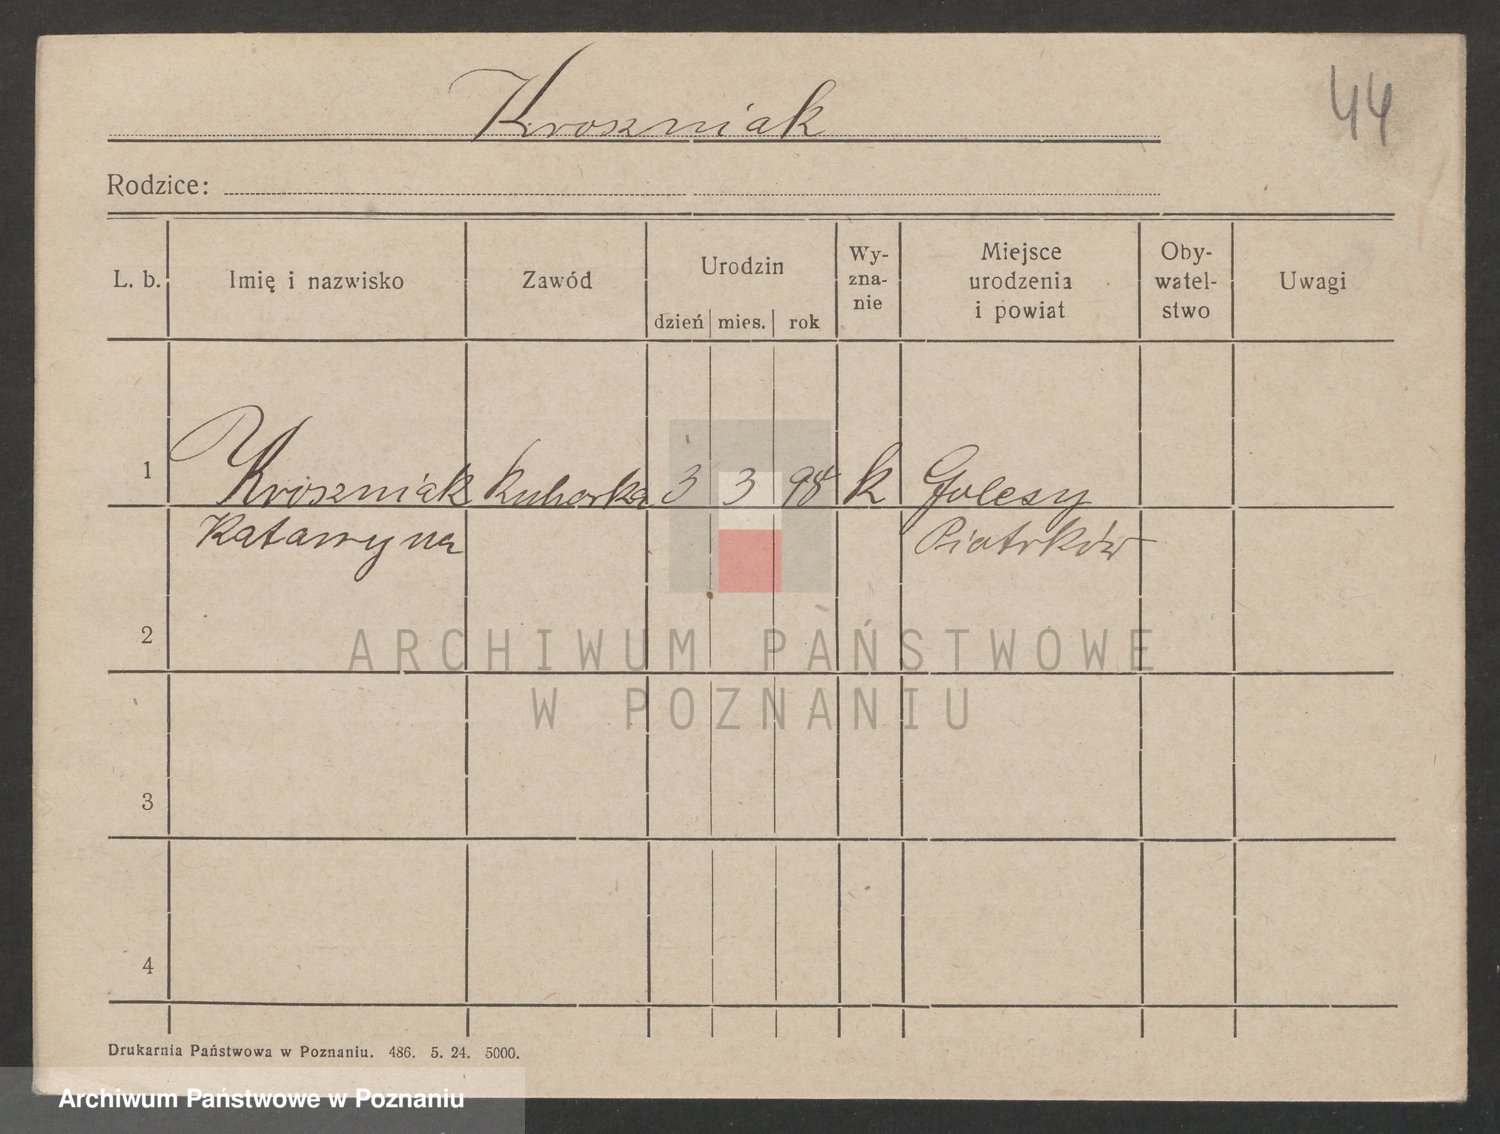 Kroszniak
44
Rodzice:
L. b.
Imię i nazwisko
Zawód
Urodzin
dzień mies. rok
Wy-
zna-
nie
Miejsce
urodzenia
i powiat
Oby-
watel-
stwo
Uwagi
1 Kroszniak kuharka 3 3 98 k Golesy
Katarzyna Piotrków
2
ARCHIWUM PAŃSTWOWE
W POZNANIU
3
4
Drukarnia Państwowa w Poznaniu. 486. 5. 24. 5000.
Archiwum Państwowe w Poznaniu